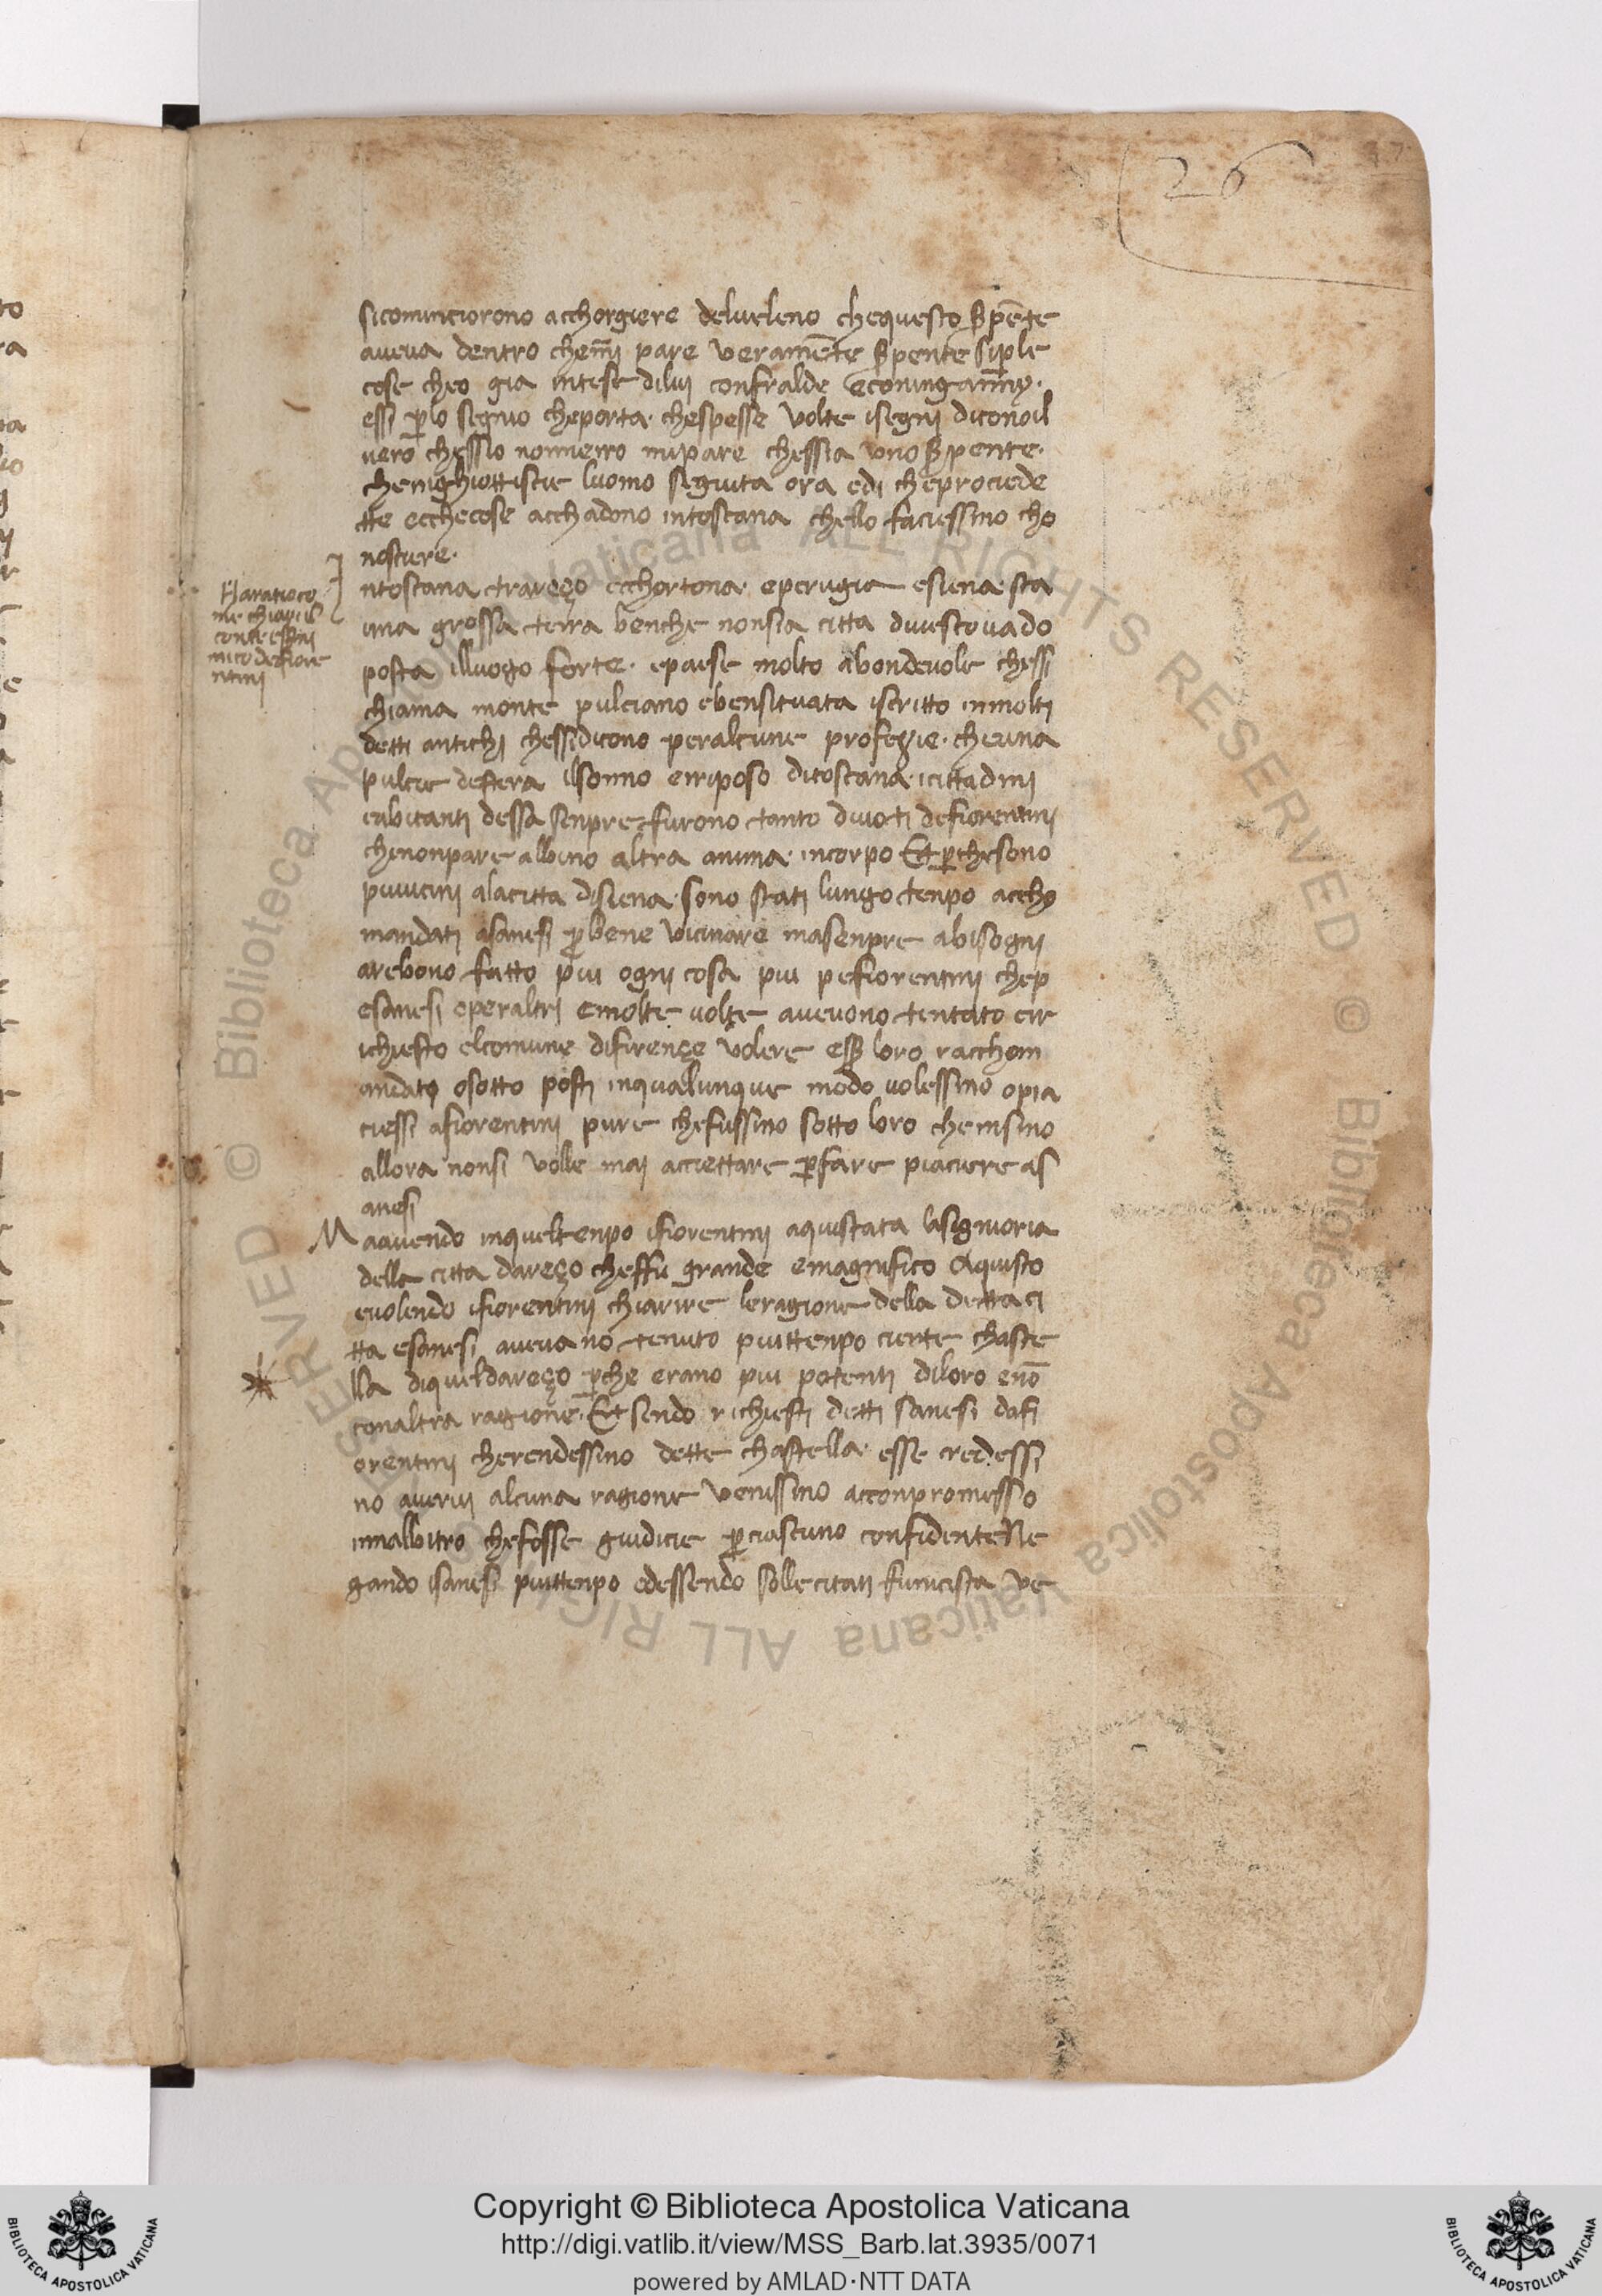 26
sicominciorono acchorgiere delveleno chequesto Spēte
aveva dentro chem̄j pare veramēte Spente siple
cose cheo gia intese diluj confralde Econinganny.
essi p̲lo segnio cheporta. chespesse volte isegnj diconoil
vero chessio nonnerro mipare chessia uno Spente.
chenighiottiscie luomo seguita ora edi cheprociede
tte ecchecose acchadono intoscana chello faciessino cho
nosciere.
ntoscana trareço ecchortona. eperugia esiena. sta
una grossa terra benche nonsia citta dvvescovado
posta illuogo forte. epaese molto abondevole chessi
chiama monte pulciano ebensituata iscritto inmolti
detti antichj chessidicono peralcune profezie. cheuna
pulcie destera ilsonno eriposo ditoscana. icittadini
eabitanti dessa senpre furono tanto divoti defiorentinj
chenonpare abbino altra anima. incorpo Et p̲chesono
piuvicinj alacitta disiena. sono stati lungo tenpo accho
mandati asanesi p̲bene vicinare masenpre abisognj
arebono fatto piu ognj cosa piu pefiorentinj chep
esanesi eperaltrj emolte volte avevono tentato eir
ichiesto elcomune difirençe volere esse loro racchom
andato osotto posti inqualunque modo volessino opia
ciessi afiorentinj pure chefussino sotto loro cheinsino
allora nonsi volle mai acciettare p̲fare piaciere as
anesi
M aavendo inqueltenpo ifiorentinj aquistata lasignioria
della citta dareço cheffu grande emagnifico Aquisto
evolendo ifiorentinj chiarire leragione della detta ci
tta esanesi aveva no tenuto piuttenpo ciente chaste
lla diqueldareço p̲che erano piu potenti diloro enō
conaltra ragione. Et sendo richiesti detti sanesi dafi
orentinj cherendessino dette chastella. esse credessi
no averui alcuna ragione venissino acconpromesso
innalbitro chefosse giudicie p̲ciascuno confidente Ne
gando isanesi piuttenpo edessendo sollecitati funicista ve
Narratioco
me
conte
nico defiore
ntinj
Copyright © Biblioteca Apostolica Vaticana
http://digi.vatlib.it/view/MSS_Barb.lat.3935/0071
powered by AMLAD·NTT DATA
BIBLIOTECA APOSTOLICA VATICANA
BIBLIOTECA APOSTOLICA VATICANA